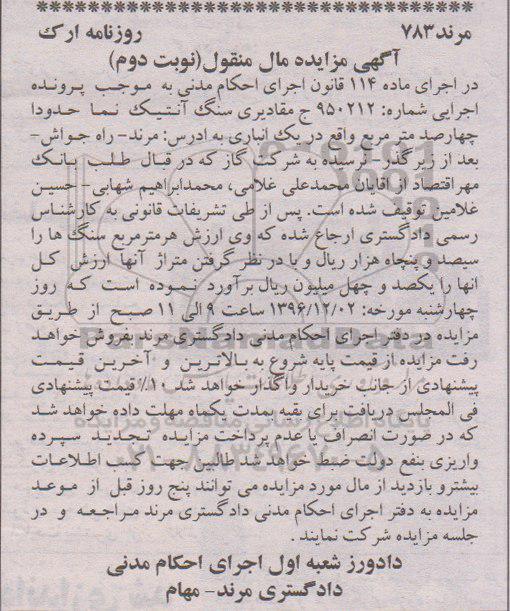 مرند ۷۸۳ روزنامه ارک
آگهی مزایده مال منقول(نوبت دوم)
در اجرای ماده ۱۱۴ قانون اجرای احکام مدنی به موجب پرونده
اجرایی شماره: ۹۵۰۲۱۲ ج مقادیری سنگ آنتیک نما حدودا
چهارصد متر مربع واقع در یک انباری به ادرس: مرند- راه جواش-
بعد از زیر گذر - نرسیده به شرکت گاز که در قبال طلب بانک
مهر اقتصاد از اقایان محمدعلی غلامی، محمدابراهیم شهابی- حسین
غلامین توقیف شده است. پس از طی تشریفات قانونی به کارشناس
رسمی دادگستری ارجاع شده که وی ارزش هرمترمربع سنگ ها را
سیصد و پنجاه هزار ریال و با در نظر گرفتن متراژ آنها ارزش کل
انها را یکصد و چهل میلیون ریال برآورد نموده است که روز
چهارشنبه مورخه: ۱۳۹۶/۱۲/۰۲ ساعت ۹ الی ۱۱ صبح از طریق
مزایده در دفتر اجرای احکام مدنی دادگستری مرند بفروش خواهد
رفت مزایده از قیمت پایه شروع به بالاترین و آخرین قیمت
پیشنهادی از جانب خریدار واگذار خواهد شد ۱۰٪ قیمت پیشنهادی
فی المجلس دریافت برای بقیه بمدت یکماه مهلت داده خواهد شد
که در صورت انصراف یا عدم پرداخت مزایده تجدید سپرده
واریزی بنفع دولت ضبط خواهد شد طالبین جهت کسب اطلاعات
بیشترو بازدید از مال مورد مزایده می توانند پنج روز قبل از موعد
مزایده به دفتر اجرای احکام مدنی دادگستری مرند مراجعه و در
جلسه مزایده شرکت نمایند.
دادورز شعبه اول اجرای احکام مدنی
دادگستری مرند- مهام
ParsNamadData
پایگاه اطلاع رسانی مناقصه و مزایده
۰۲۱-۸۸۳۴۹۶۷۰-۵